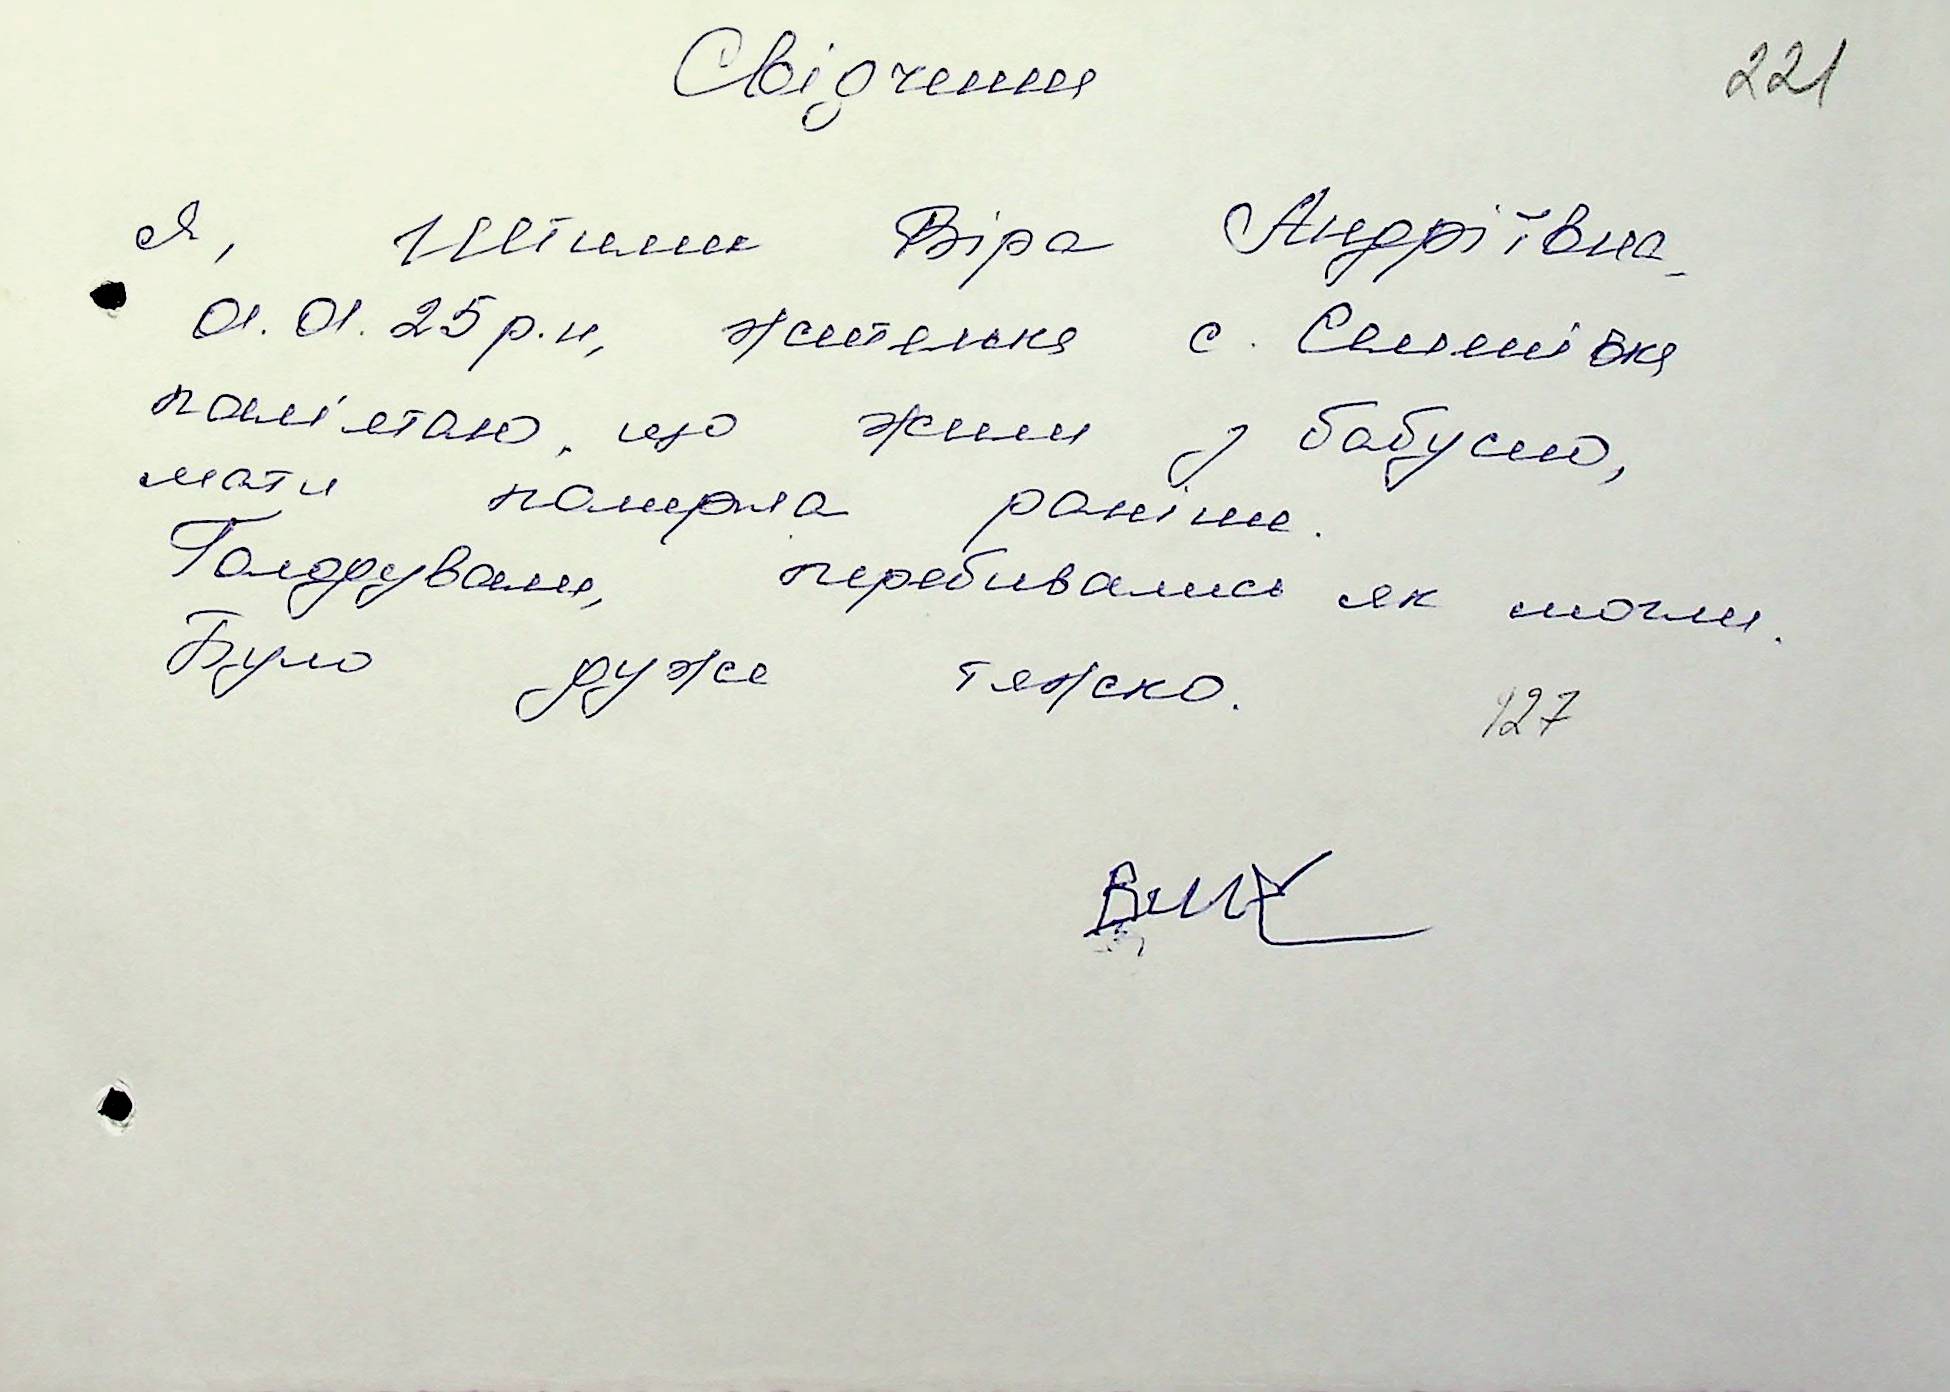 Свідчення
221
Я, Штилик Віра Андріївна
01.01.25 р.н, жителька с. Семенівка
пам'ятаю, що жили з бабусию,
мати померла раніше.
Голдрували, перебивались як могли.
Було дуже тяжко.
127